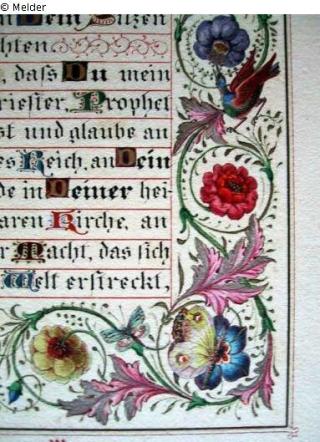 © Melder
Dein Sitzen
chten
, dass Du mein
riester, Prophet
st und glaube an
es Reich, an Dein
de in Deiner hei-
aren Kirche, an
r Macht, das sich
Welt erstreckt,